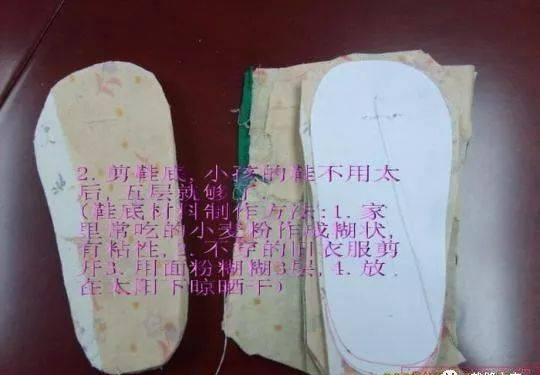 2. 剪鞋底、小孩的鞋不用太
后，五层就够了.
(鞋底材料制作方法:1. 家
里常吃的小麦粉作成糊状,
有粘性, 2. 不穿的旧衣服剪
开3. 用面粉糊糊3层, 4. 放
在太阳下晾晒干)